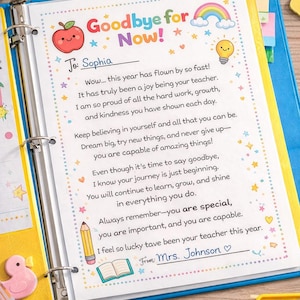 Goodbye for
Now!
To: Sophia
Wow... this year has flown by so fast!
It has truly been a joy being your teacher.
I am so proud of all the hard work, growth,
and kindness you have shown each day.
Keep believing in yourself and all that you can be.
Dream big, try new things, and never give up—
you are capable of amazing things!
Even though it's time to say goodbye,
I know your journey is just beginning.
You will continue to learn, grow, and shine
in everything you do.
Always remember—you are special,
you are important, and you are capable.
I feel so lucky tave been your teacher this year.
From, Mrs. Johnson ♡